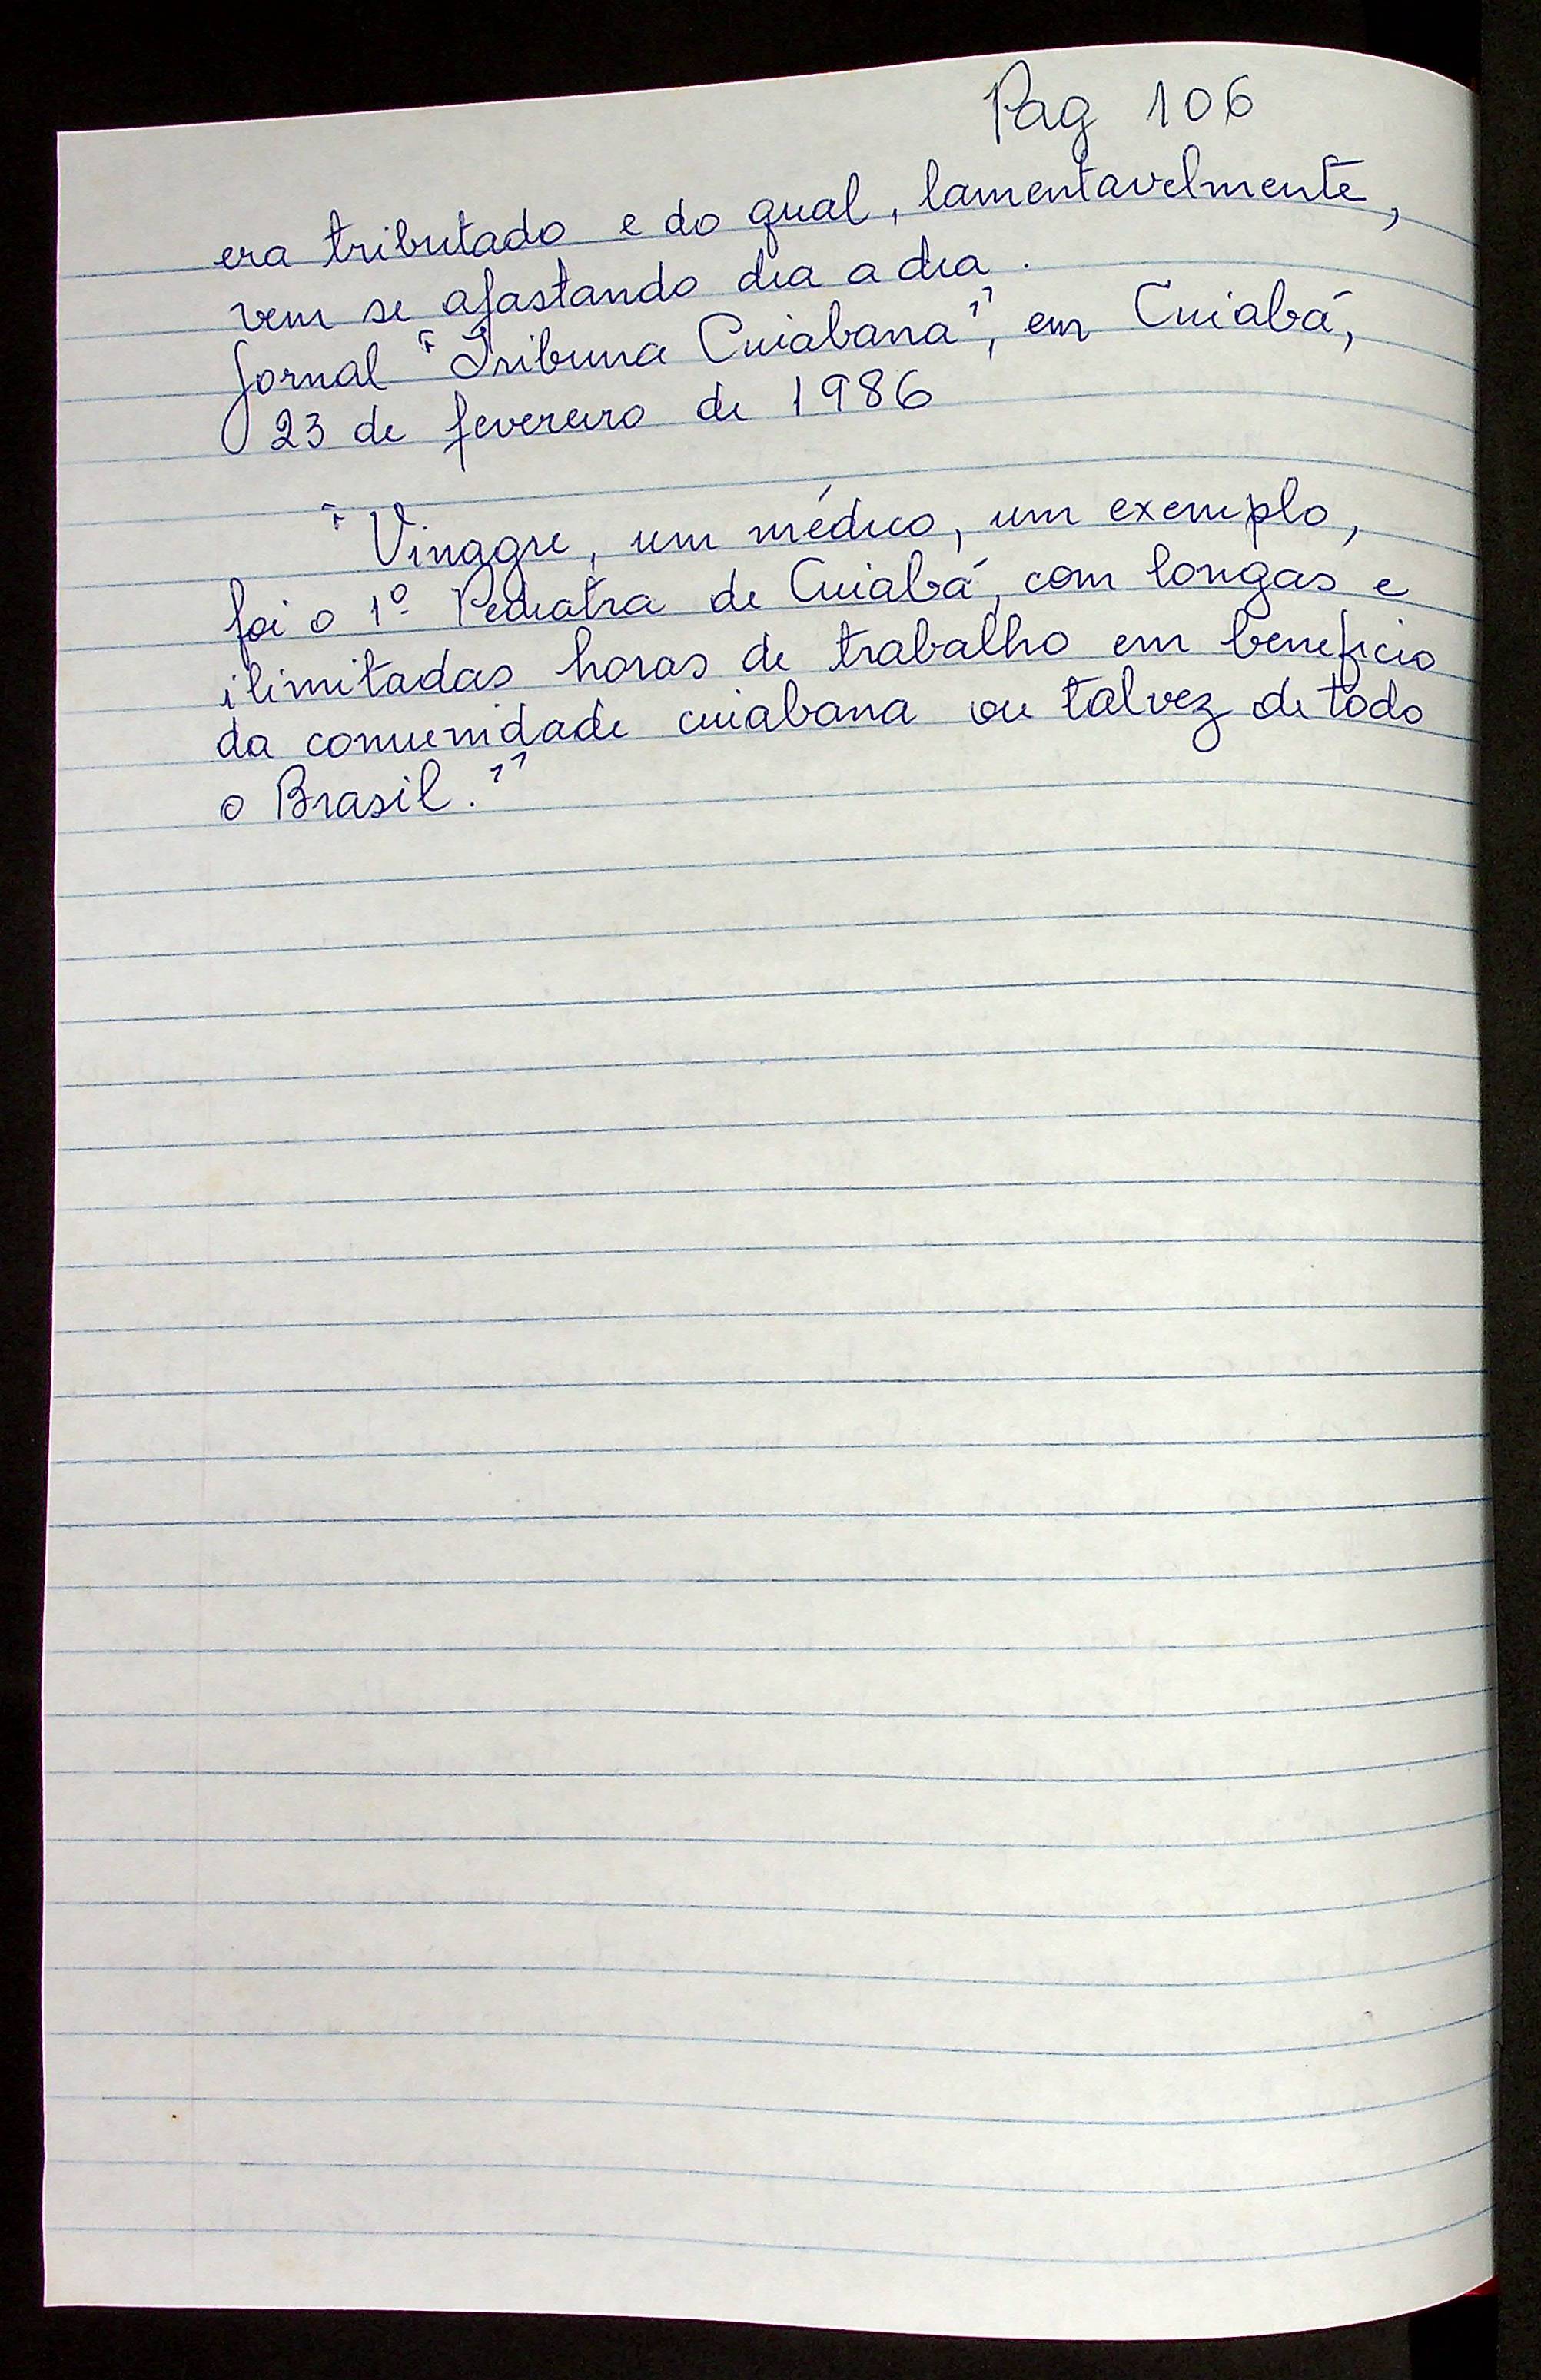 Pag 106
era tributado e do qual, lamentavelmente,
vem se afastando dia a dia.
Jornal "Tribuna Cuiabana", em Cuiabá,
23 de fevereiro de 1986
"Vinagre, um médico, um exemplo,
foi o 1º Pediatra de Cuiabá, com longas e
ilimitadas horas de trabalho em beneficio
da comunidade cuiabana ou talvez de todo
o Brasil."